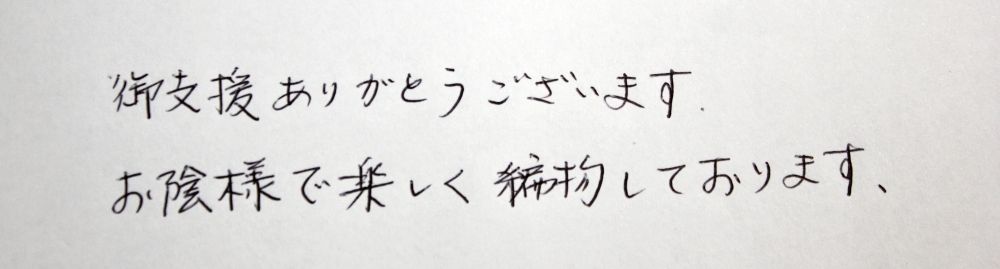 御支援ありがとうございます.
お陰様で楽しく編物しております、